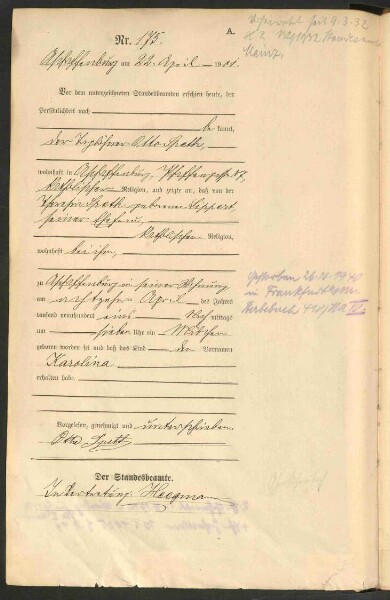 A.
Nr. 175.
Aschaffenburg am 22. April 1901.
Vor dem unterzeichneten Standesbeamten erschien heute, der
Persönlichkeit nach
be kannt,
der Otto Speth,
wohnhaft in Aschaffenburg,
katholischer Religion, und zeigte an, daß von der
Theresia Speth geborene Lippert,
seiner Ehefrau,
katholischer Religion,
wohnhaft bei ihm,
zu Aschaffenburg in seiner Wohnung
am achtzehn April des Jahres
tausend neunhundert eins Nachmittags
um sieben Uhr ein Mädchen
geboren worden sei und daß das Kind den Vornamen
Karolina
erhalten habe.
Vorgelesen, genehmigt und unterschrieben
Otto Speth
Der Standesbeamte.
In Vertretung:
Verehelicht seit 9.3.32
Mainz.
Gestorben 26.10.1940
in Frankfurt
Sterbebuch